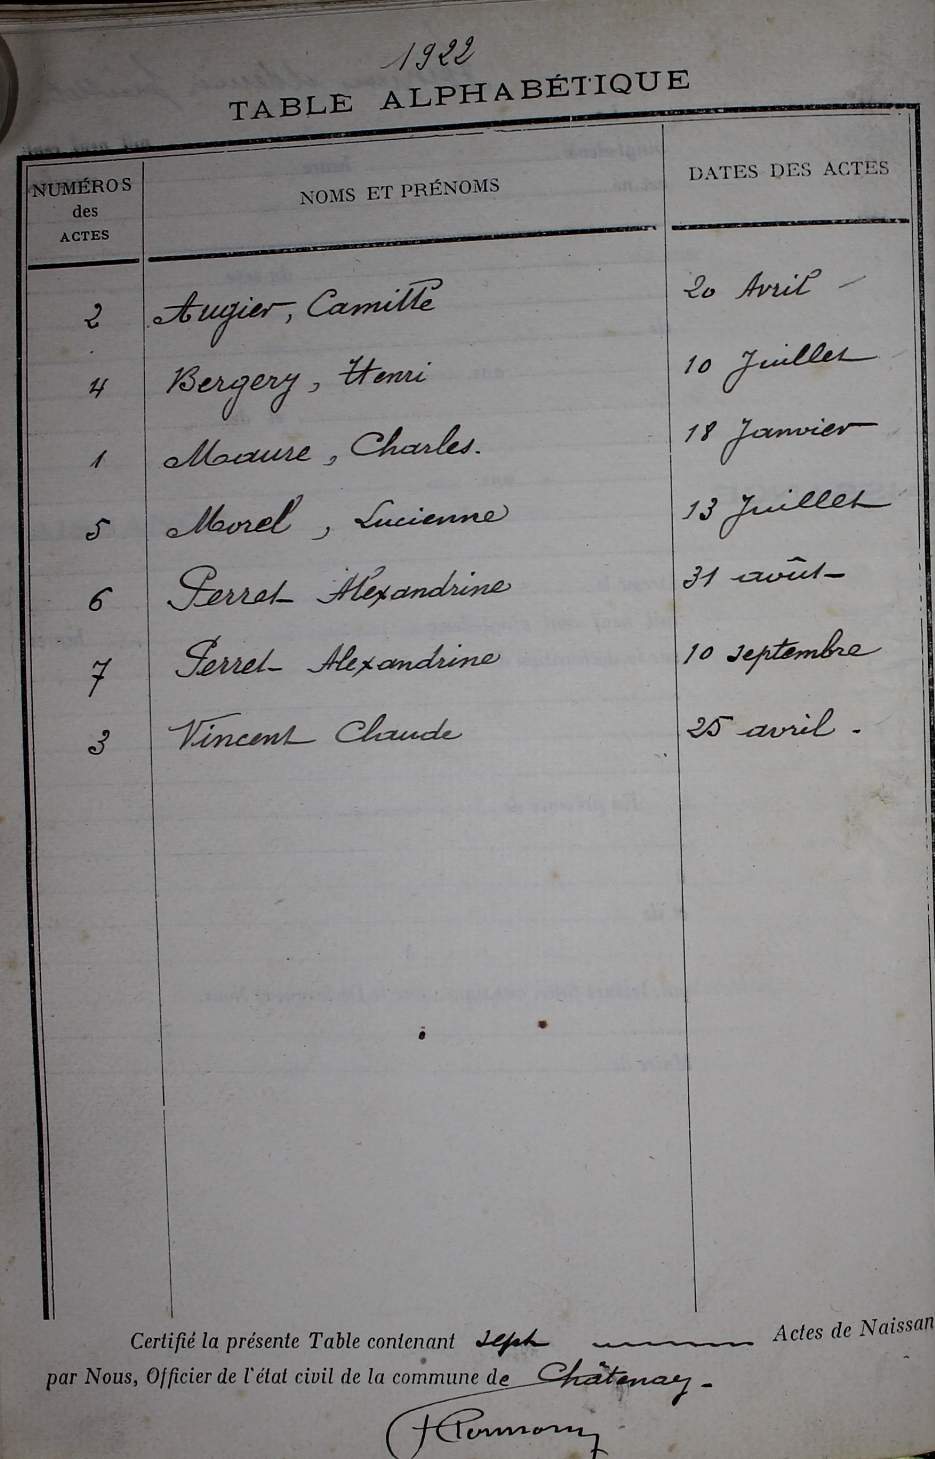 1922
TABLE ALPHABÉTIQUE
NUMÉROS des ACTES NOMS ET PRÉNOMS DATES DES ACTES
2 Augier, Camille 20 Avril
4 Bergery, Henri 10 Juillet
1 Maure, Charles. 18 Janvier
5 Morel, Lucienne 13 Juillet
6 Perret Alexandrine 31 août
7 Perret Alexandrine 10 septembre
3 Vincent Claude 25 avril.
Certifié la présente Table contenant sept Actes de Naissan
par Nous, Officier de l'état civil de la commune de Châtenay